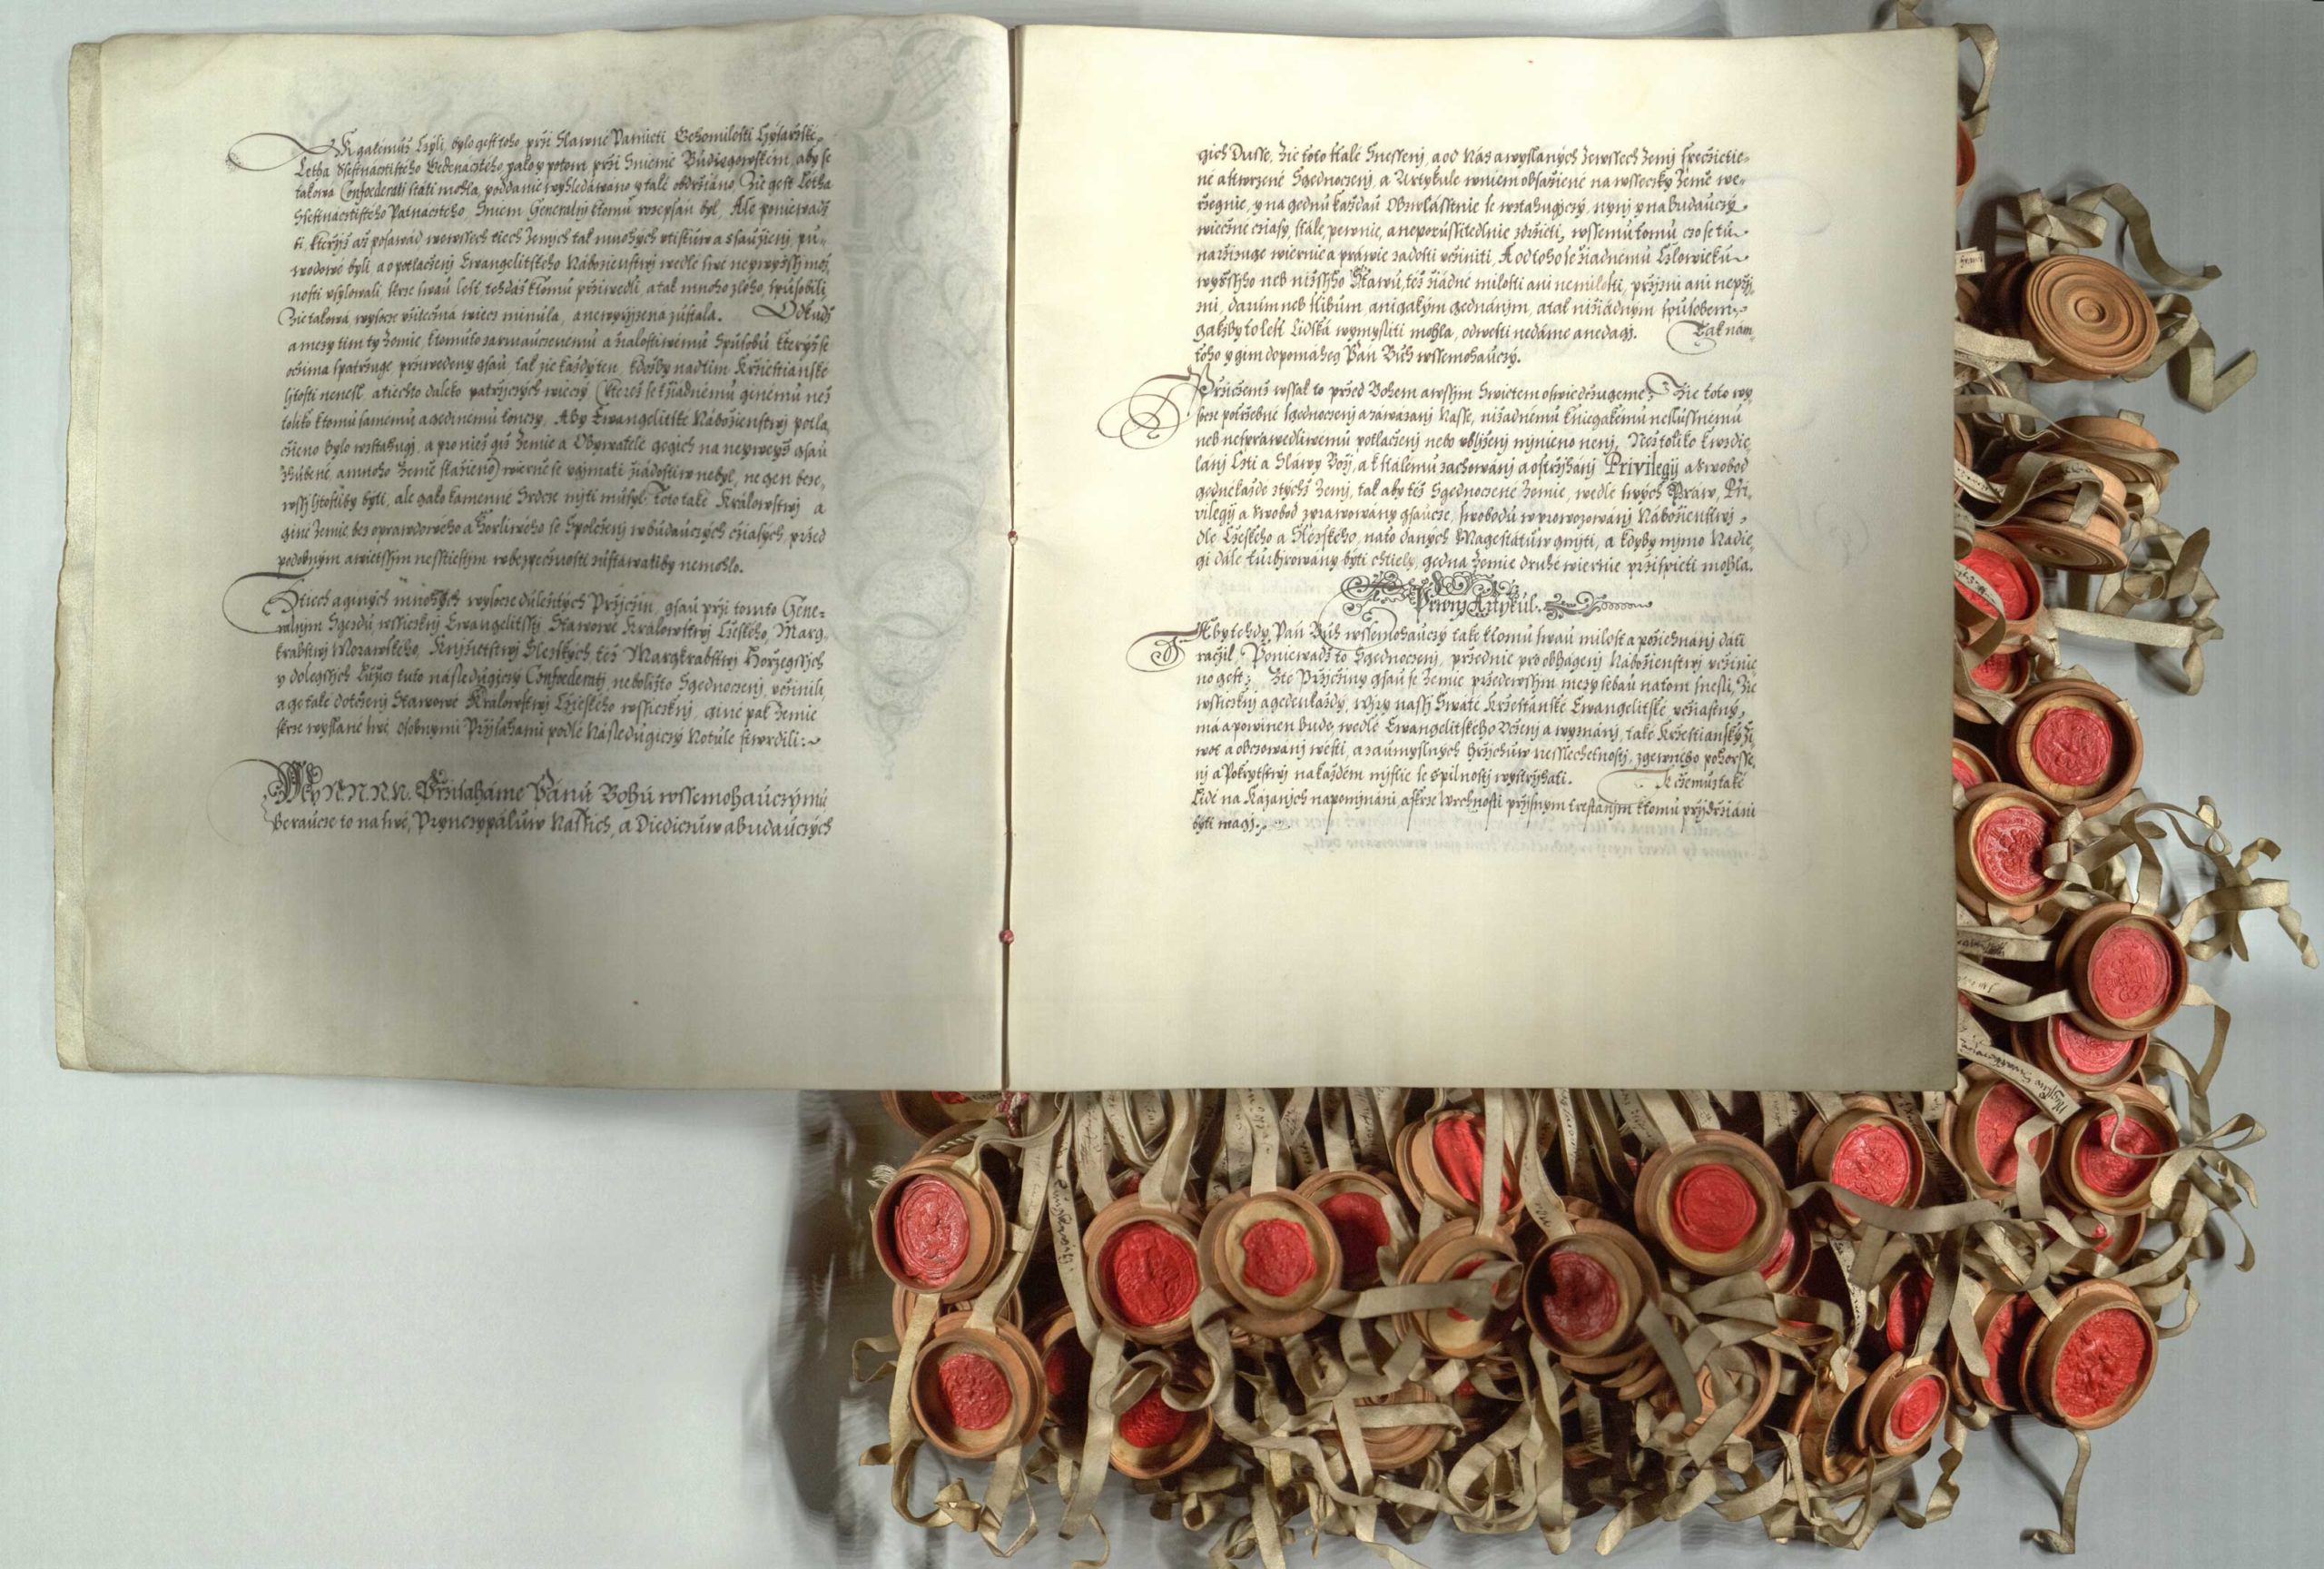 A gakemuž Czyli, bylo gest toho při Slawné Paměti Geho milosti Cysařské,
Letha Ssestnácttistého Gedenáctého, yako y potom při Sniemě Budiegowském, aby se
takowá Confoederati státi mohla, poddanie wyhledáwano y také obdržáno, Že gest Létha
Ssestnácttistého Patnáctého, Sniem Generalnj k tomu rozepsán byl, Ale poniewadž
ti, kteřjž až posawád we wssech tiech Zemjch tak mnohých vtiskůw a ssaužienj, pů-
wodowé byli, a o potlačenj Ewangelitského Náboženstwj wedlé swé neywyžssj mož,
nosti vsylowali, skrze swau lest tehdáž k tomu přiwedli, a tak mnoho zlého, spůsobili,
Že taková wysoce vžitečná wiecz minula, a newyřjzena zůstala. Odkudž
a mezy tim ty Zemie, k tomuto zarmaucenému a žalostiwému Spůsobu, kterýž se
očima spatřuge přiwedeny gsau, tak že každý ten, kdožby nad tim Křestianské
ljtosti nenesl, a tiechto daleko patřjcých wieczý (kteréž se k žiadnému ginému než
toliko k tomu samému a gedinému konczy, Aby Ewangelitské Náboženstwj potla,
čieno bylo wztahugj, a pro niež giž Zemie a Obywatelé gegich na neywejš gsau
zhubené, a mnoho Zemie skaženo) wiernie se vgjmati žiádostiw nebyl, negen beze,
wssj ljtosti by býti, ale gako kamenné Srdce mjti musyl. Toto také Králowstwj a
giné Zemie bez oprawdowého a Horliwého se Spolčenj w budaucých čiasých, před
podobným a wietssjm nesstiestjm w bezpečnosti zůstawati by nemohlo.
Z tiech a giných mnohých wysoce důležitých Přjčin, gsau při tomto Gene-
ralnjm Sgezdu, wssickni Ewangelitssj Stawowé Králowstwj Cžeského, Marg-
krabstwj Morawského, Knjžetstwj Slezských, též Margkrabstwj Hořegssjch
y dolegssjch Lužicz tuto následugjczý Confoederatj, neboližto Sgednocenj, včinili,
a ge také dotčenj Stawowé Králowstwj Cžeského wssickni, giné pak Zemie
skrze wyslané swé, osobnými Přjsahami podlé Následugjczý Notule stwrdili:
My N. N. N. N. Přisaháme Pánu Bohu wssemohaucýmu
Beraucze to na swé, Pryncypálůw Nassich, a Diediczůw a budaucých
gich Dusse, Že toto stálé Snessenj, a od Nás a wyslaných ze wssech Zemj spečetie-
né a stwrzené Sgednocenj, a Artykule w niem obsažené na wsseczky Zemie we-
řegnie, y na gednu každau Obzwlásstnie se wztahugjczý, nynj y na budauczý
wiečné čiasy, stále, pewnie, a neporussitedlnie zdržeti, wssemu tomu czo se tu
nařizuge wiernie a práwie zadosti včiniti, A od toho se žiadnému Cžlowieku
wyžssjho neb nižssjho Stawu, též žiádné milosti ani nemilosti, přjzni ani nepřj,
zni, darům neb slibům, ani gakým gednánjm, a tak nižiádným spůsobem,
gakžby to lest Lidská wymysliti mohla, odwesti nedáme ane dagj. Tak nám
toho y gim dopomáheg Pán Bůh wssemohauczý.
Přičemž wssak to před Bohem a wssjm Swietem oswiedčugeme, Že toto wy
soce potřebné sgednocenj a zawázanj Nasse, nižádnému kniegakému neslussnému
neb nesprawedliwému potlačenj nebo vbljženj mjnieno nenj, Než toliko k wzdie-
lánj Cti a Slawy Božj, a k stálému zachowánj a ostřjhánj Privilegij a swobod
gednékaždé z tychž Zemj, tak aby též Sgednocené Zemie, wedlé swých Práw, Pri-
vilegij a Swobod zprawowány gsaucze, swobodu w prowozowánj Náboženstwj,
dle Cžeského a Slezského, na to daných Magestátůw gmjti, a kdyby mjmo Nadie-
gi dále turbyrowány býti chtiely, gedna Zemie druhé wiernie přispieti mohla.
Prwnj Artykul.
Aby tehdy, Pán Bůh wssemohauczý také k tomu swau milost a požehnánj dáti
račil, Poniewadž to Sgednocenj, přednie pro obhágenj Náboženstwj včinie
no gest; Z té Přjčiny gsau se Zemie předewssjm mezy sebau na tom snesli, Že
wssickni a gedenkaždý, wjry nassj Swaté Křestánské Ewangelitské včiastnj,
má a powinen bude, wedlé Ewangelitského Včenj a wyznánj, také Křestianský ži
wot a obcowanj wésti, a zaumyslných Hřjchůw nesslechetnostj, zgewného pohorsse,
nj a Pokrytstwj na každém mjstie se s pilnostj wystřjhati. K čemuž také
Lidé na Kázanjch napomjnáni, a skrze Wrchnosti přjsným trestanjm k tomu přjdržáni
býti magj.